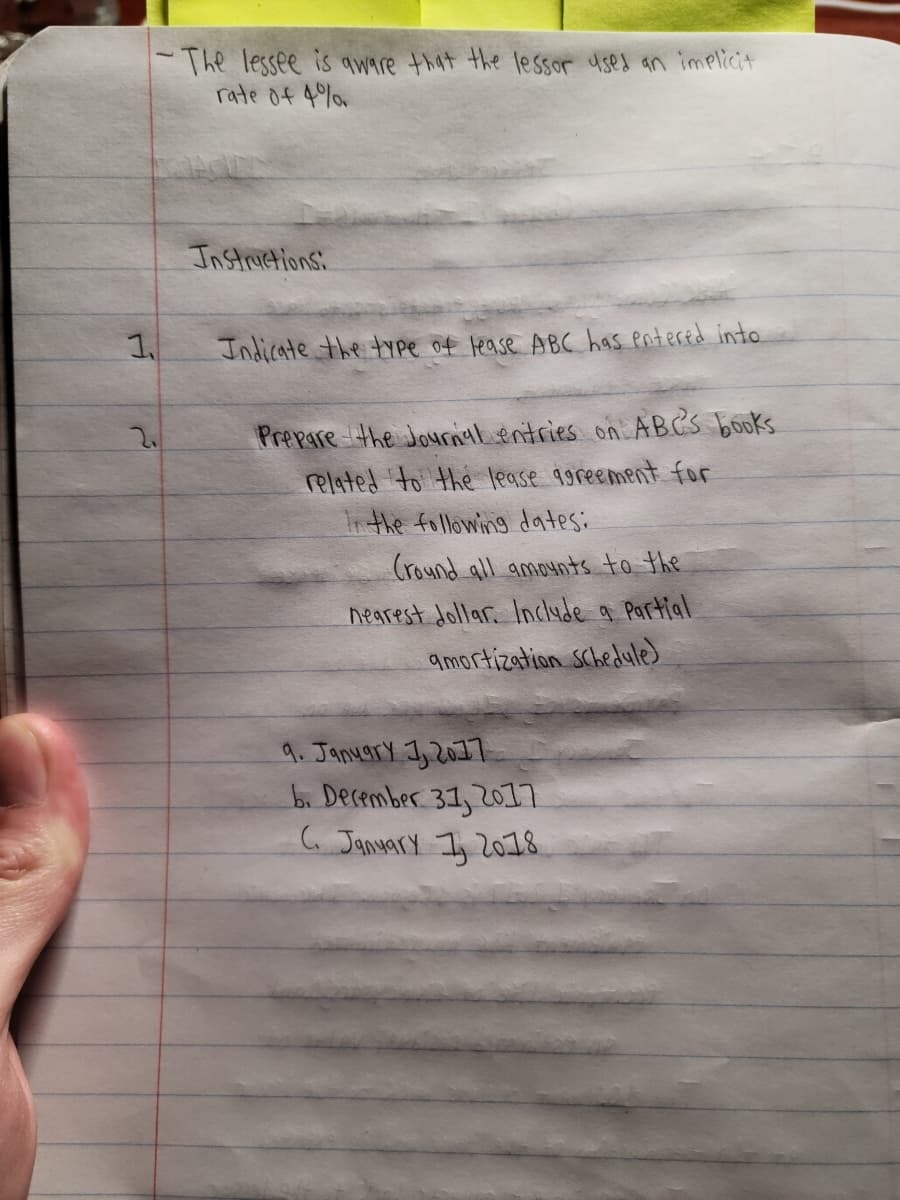 - The lessee is aware that the lessor used an implicit
rate of 4%.
Instructions:
1. Indicate the type of lease ABC has entered into
2. Prepare the Journal entries on ABC's books
related to the lease agreement for
the following dates:
(round all amounts to the
nearest dollar. Include a partial
amortization schedule)
a. January 1, 2017
b. December 31, 2017
C. January 1, 2018